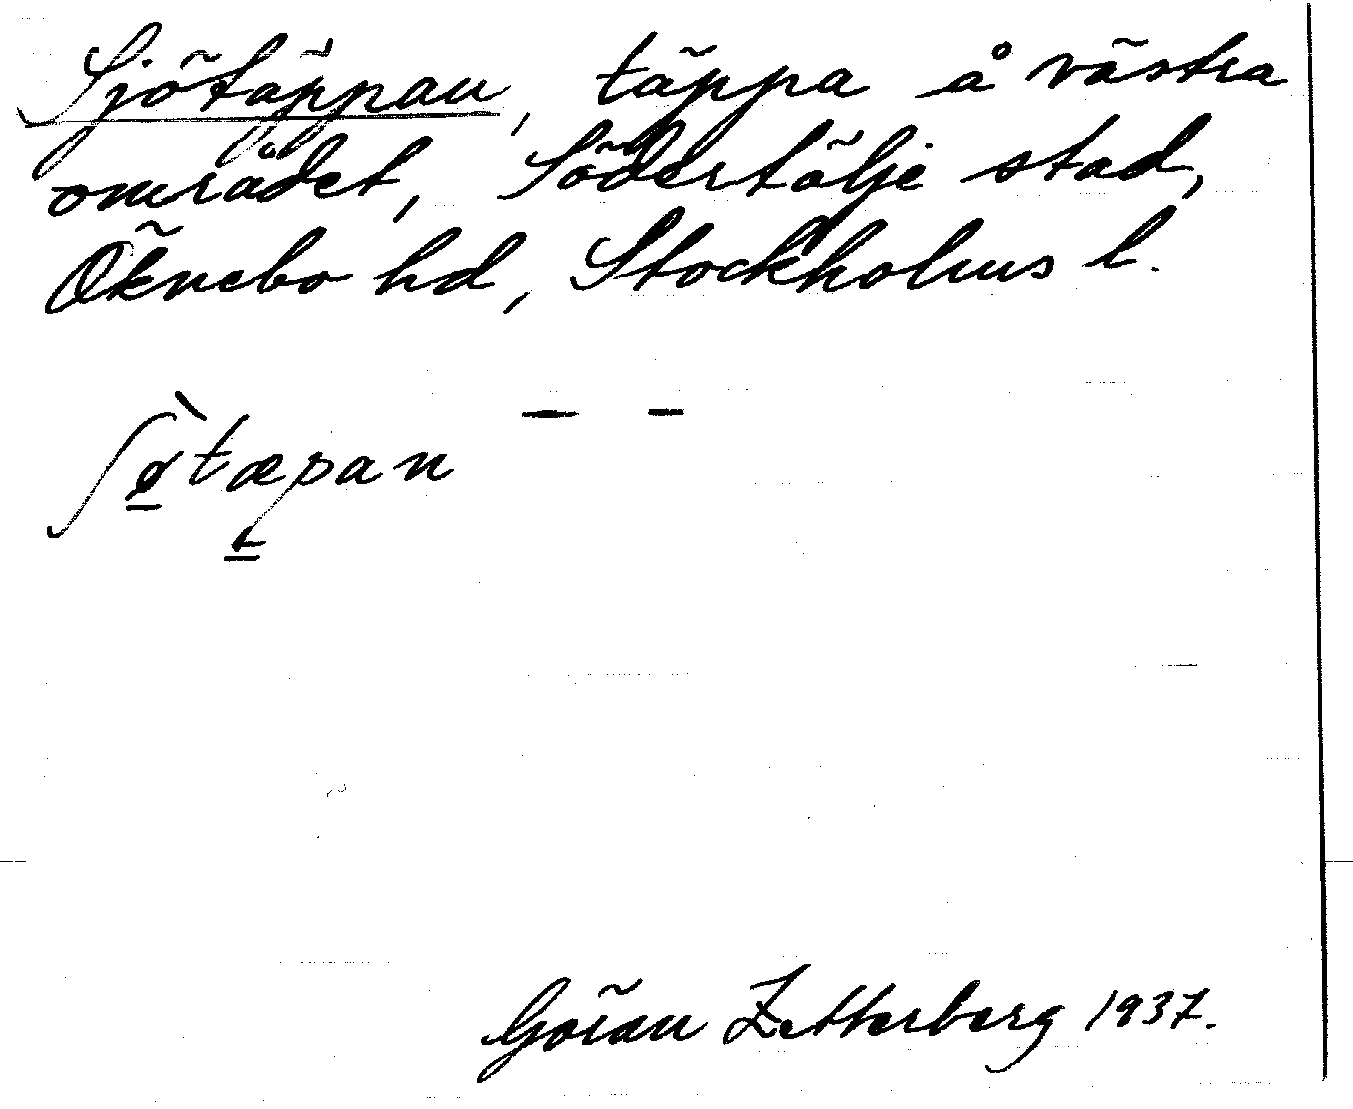 Sjötäppan, täppa å västra
området, Södertälje stad,
Öknebo hd, Stockholms l.
ʃø̀tæpan – –
Göran Zetterberg 1937.